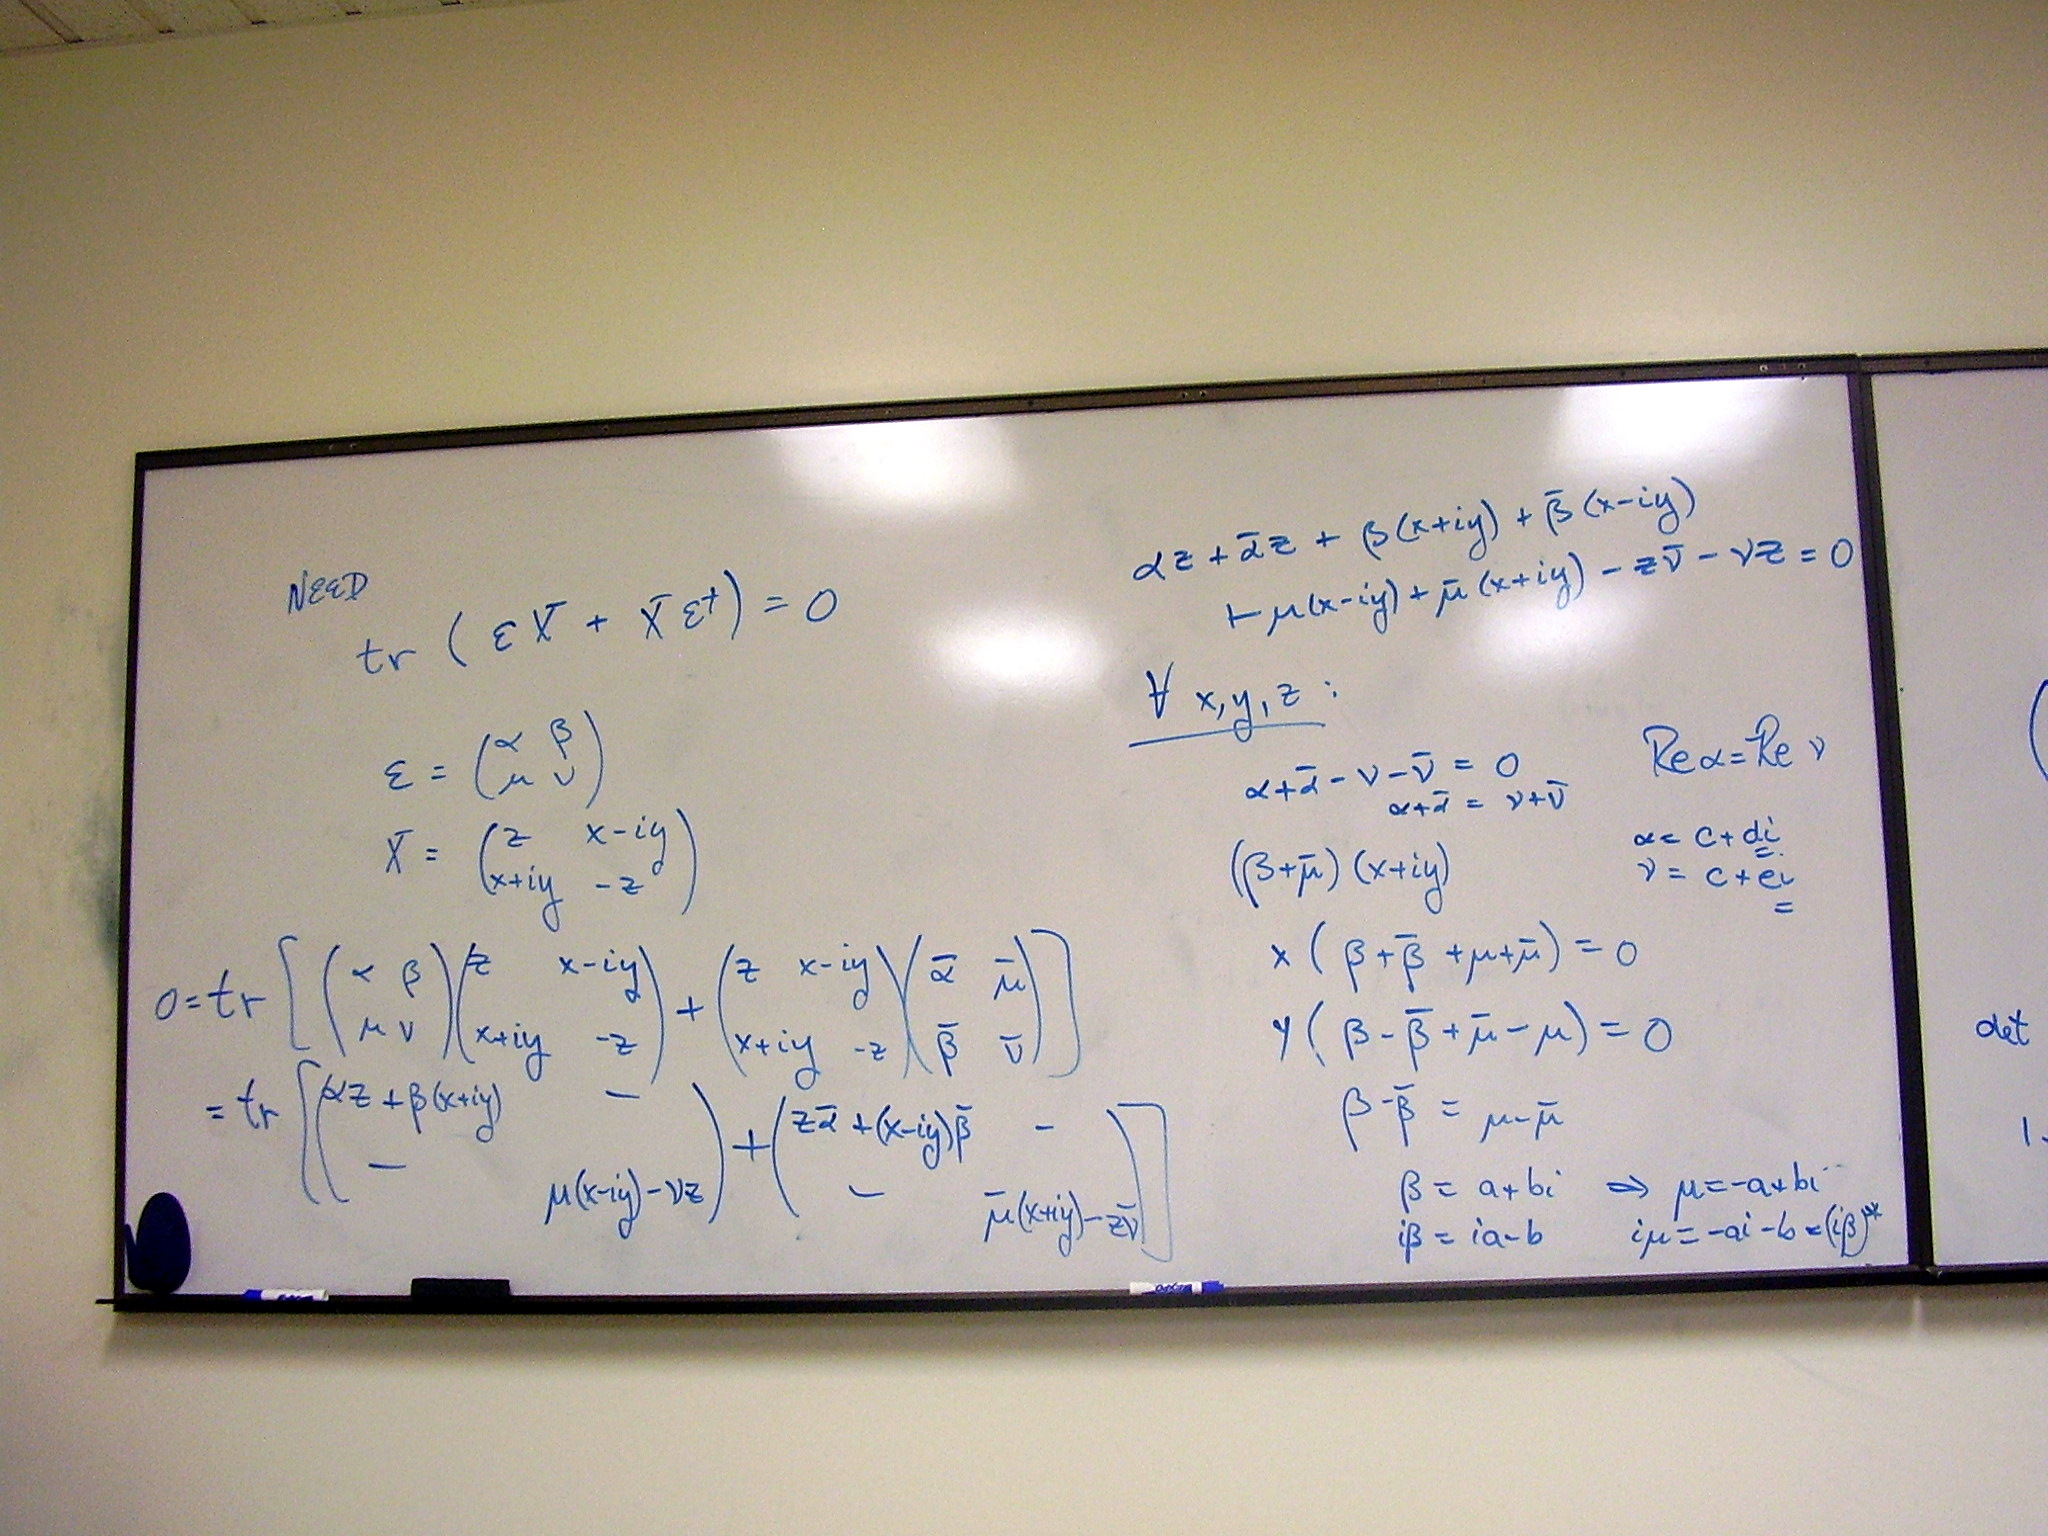 NEED
tr ( εX + Xε†) = 0
ε = (α β
μ ν)
X = (z x-iy
x+iy -z)
0 = tr [(α β
μ ν)(z x-iy
x+iy -z) + (z x-iy
x+iy -z)(ᾱ μ̄
β̄ ν̄)]
= tr [(αz + β(x+iy) —
— μ(x-iy) - νz) + (zᾱ + (x-iy)β̄ -
- μ̄(x+iy) - zν̄)]
αz + ᾱz + β(x+iy) + β̄(x-iy)
+ μ(x-iy) + μ̄(x+iy) - zν̄ - νz = 0
∀ x, y, z :
α+ᾱ - ν - ν̄ = 0
α+ᾱ = ν+ν̄
Re α = Re ν
α = c + di
ν = c + ei
(β+μ̄) (x+iy)
x ( β + β̄ + μ + μ̄ ) = 0
y ( β - β̄ + μ̄ - μ ) = 0
β - β̄ = μ - μ̄
β = a + bi ⇒ μ = -a + bi
iβ = ia - b iμ = -ai - b = (iβ)*
det
1-